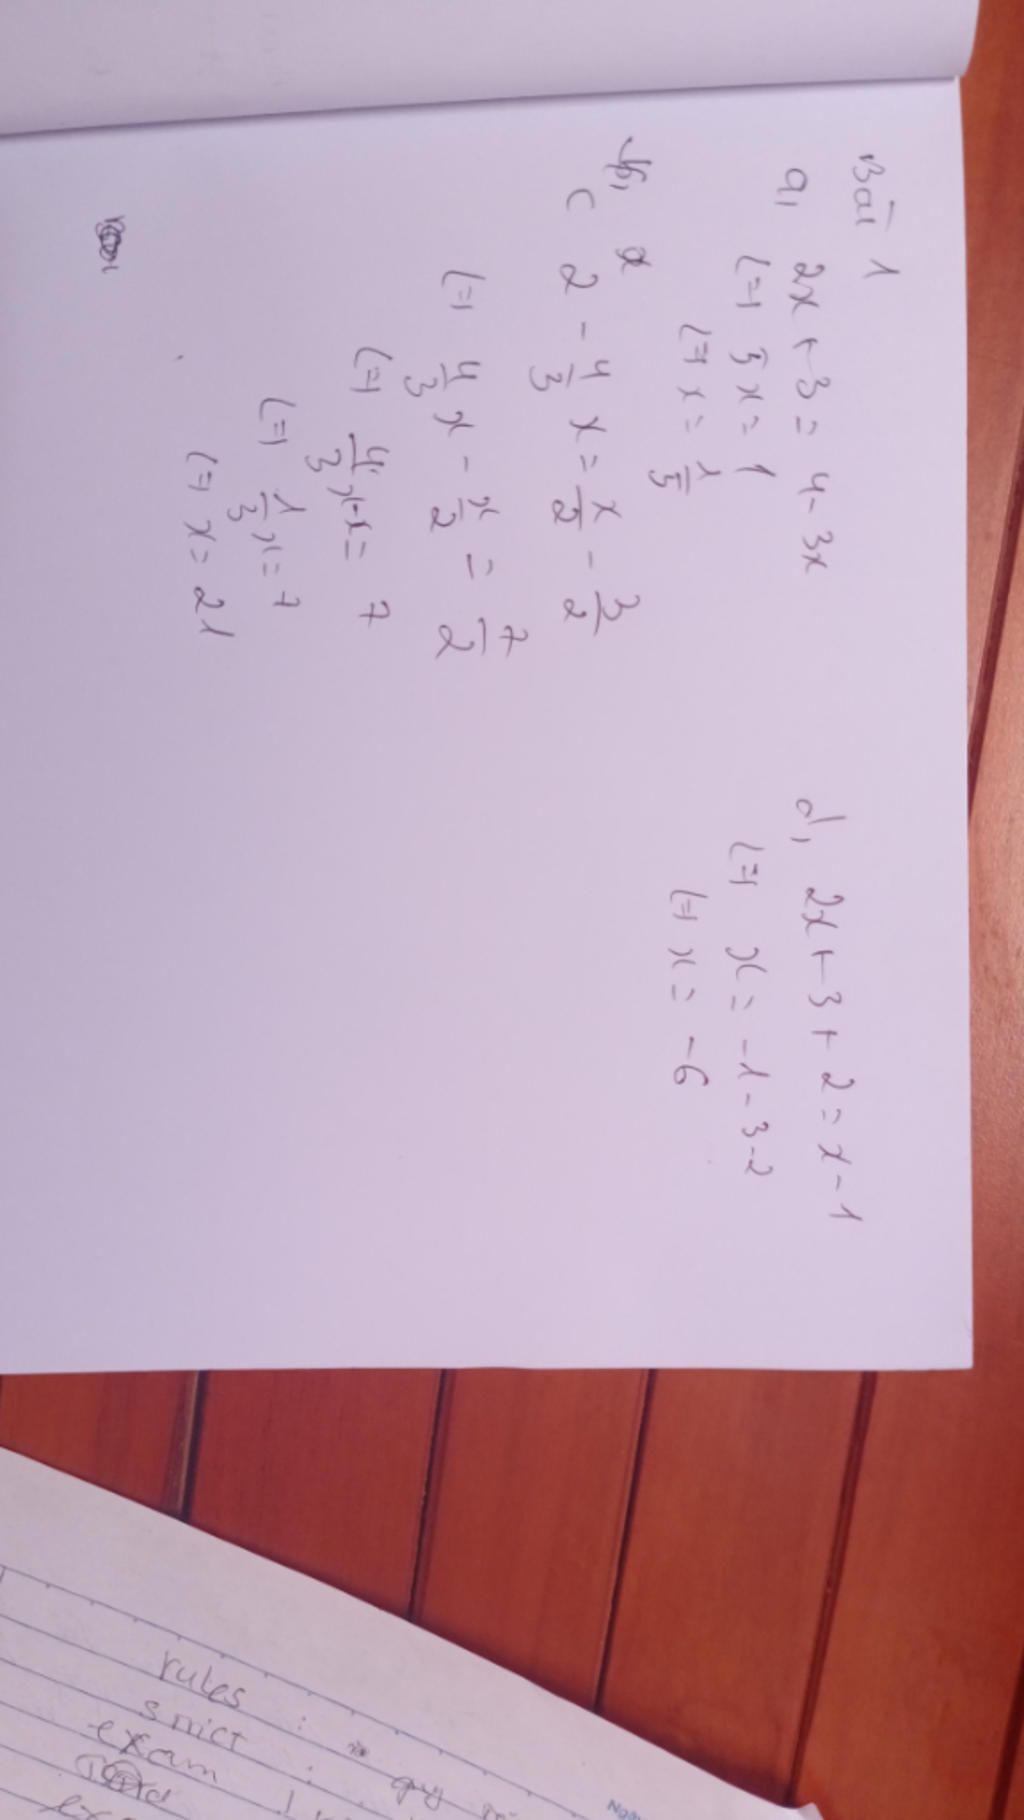 Bài 1
a, 2x + 3 = 4 - 3x
(=) 5x = 1
(=) x = 1/5
c 2 - 4/3 x = x/2 - 3/2
(=) 4/3 x - x/2 = 7/2
(=) 4/3 x - x = 7
(=) 1/3 x = 7
(=) x = 21
d, 2x + 3 + 2 = x - 1
(=) x = -1 - 3 - 2
(=) x = -6
rules :
exam
quy